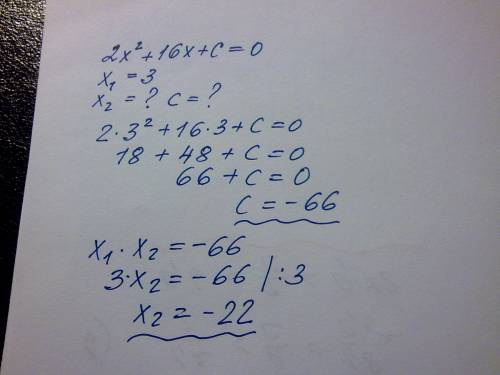 2x² + 16x + C = 0
x₁ = 3
x₂ = ? C = ?
2·3² + 16·3 + C = 0
18 + 48 + C = 0
66 + C = 0
C = -66
x₁ · x₂ = -66
3·x₂ = -66 / :3
x₂ = -22